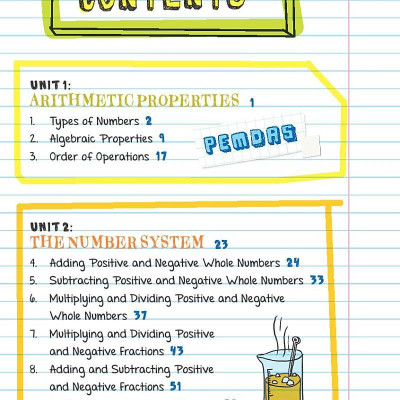 CONTENTS
UNIT 1:
ARITHMETIC PROPERTIES 1
1. Types of Numbers 2
2. Algebraic Properties 9
3. Order of Operations 17
PEMDAS
UNIT 2:
THE NUMBER SYSTEM 23
4. Adding Positive and Negative Whole Numbers 24
5. Subtracting Positive and Negative Whole Numbers 33
6. Multiplying and Dividing Positive and Negative
Whole Numbers 37
7. Multiplying and Dividing Positive
and Negative Fractions 43
8. Adding and Subtracting Positive
and Negative Fractions 51